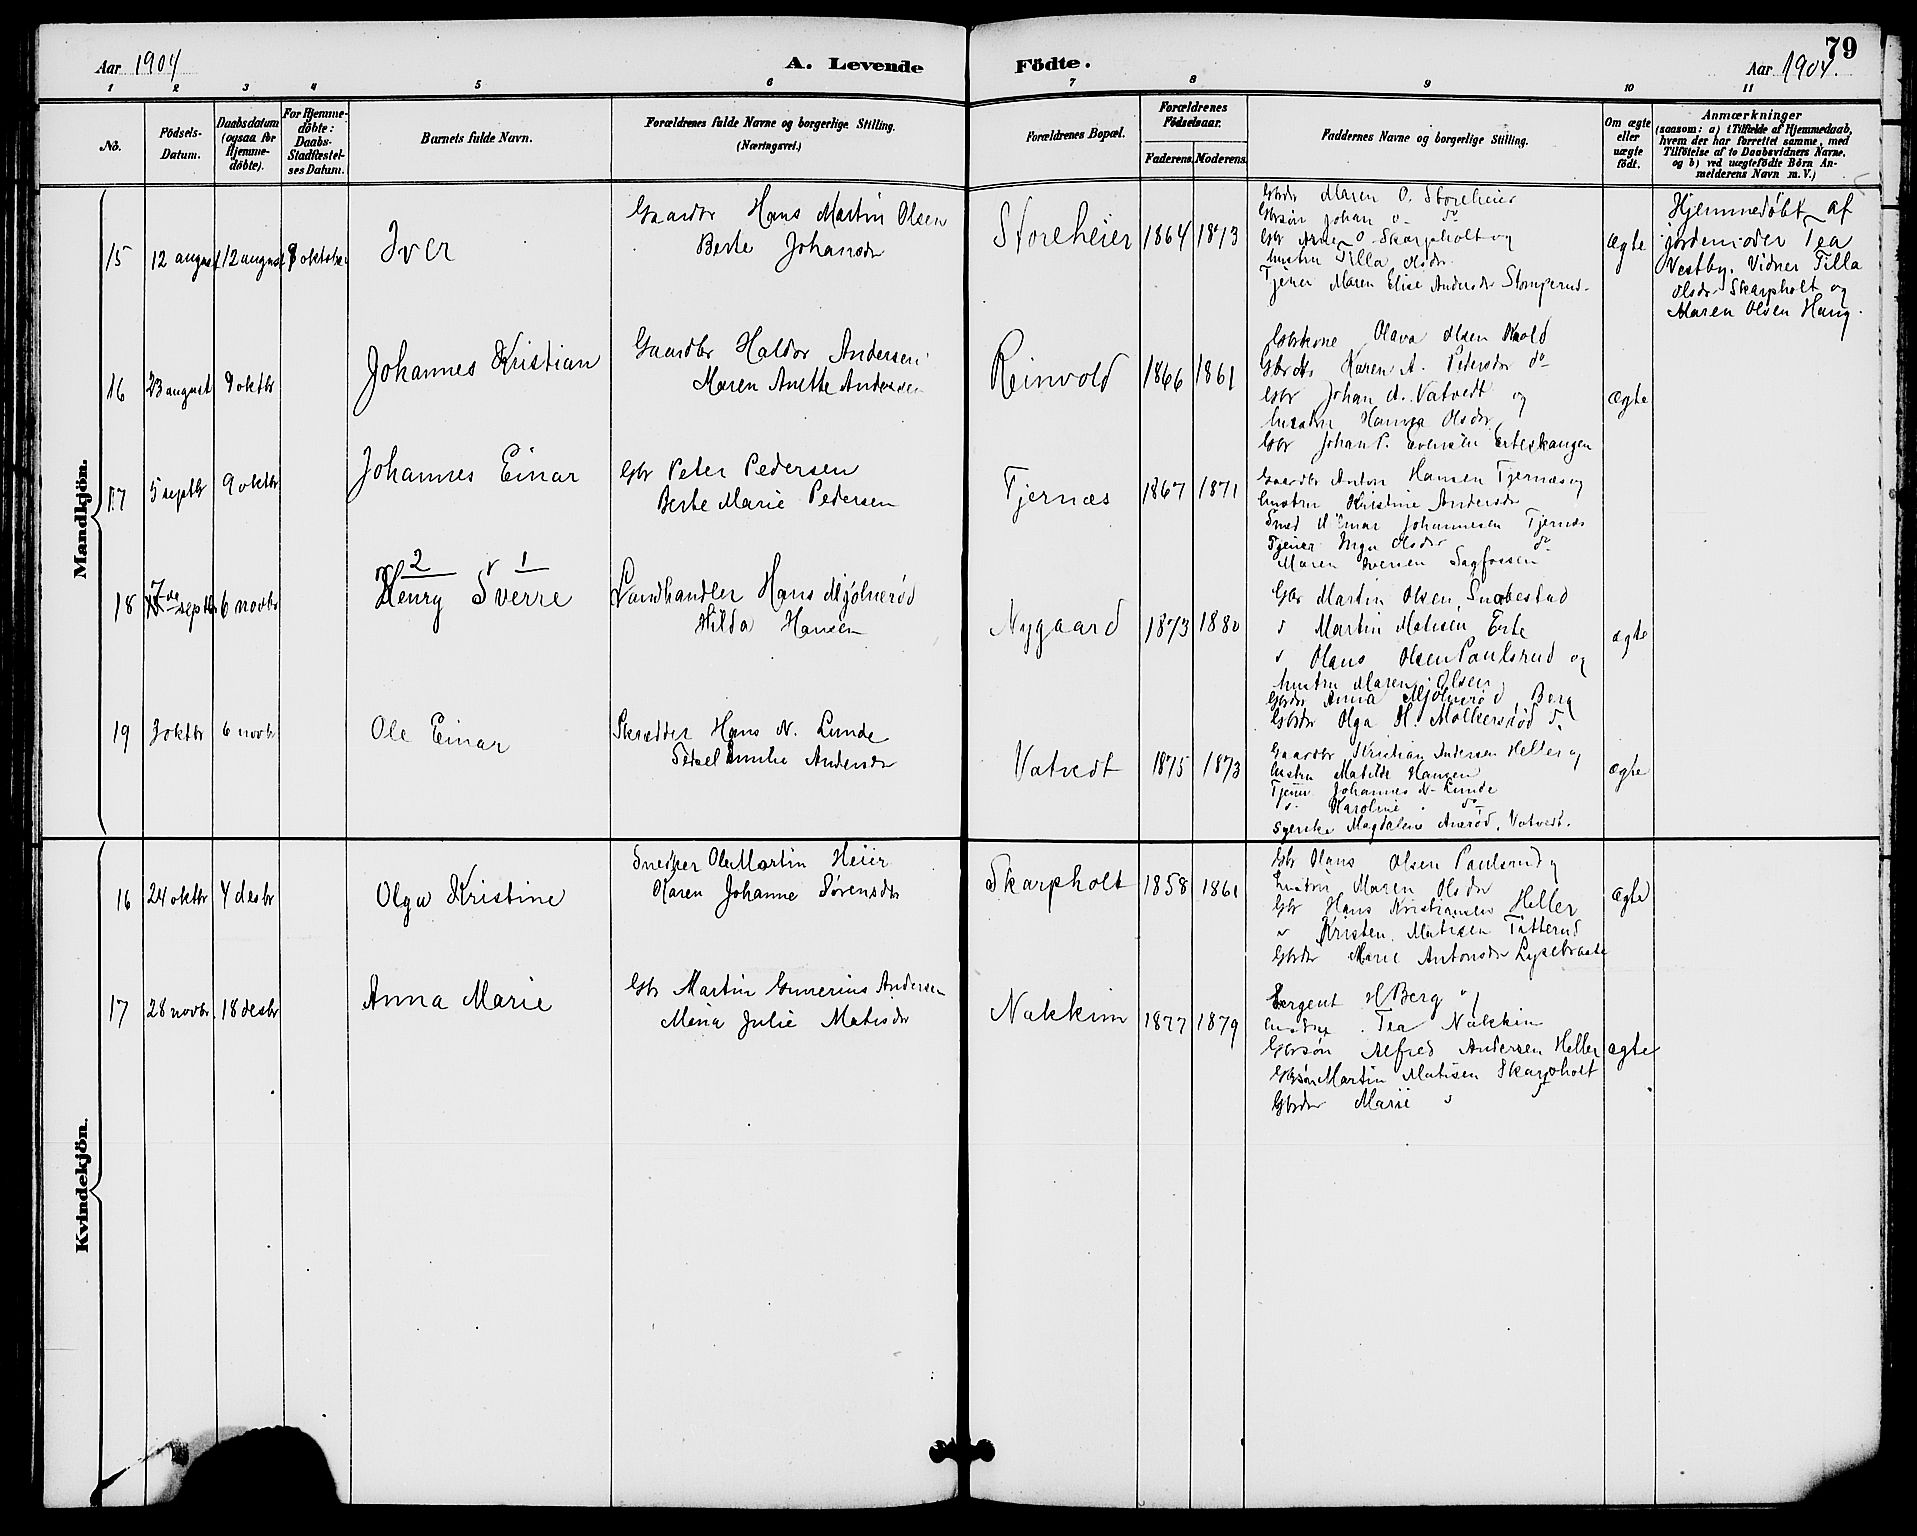 79
Aar 1904
A. Levende Födte.
Aar 1904.
1 2 3 4 5 6 7 8 9 10 11
No.
Födsels-
Datum.
Daabsdatum
(ogsaa for
Hjemme-
döbte).
For Hjemme-
döbte:
Daabs-
Stadfæstel-
ses Datum.
Barnets fulde Navn.
Forældrenes fulde Navne og borgerlige Stilling.
(Næringsvei.)
Forældrenes Bopæl.
Forældrenes
Födselsaar.
Faderens. Moderens.
Faddernes Navne og borgerlige Stilling.
Om ægte
eller
uægte
født.
Anmærkninger
(saasom: a) i Tilfælde af Hjemmedaab,
hvem der har forrettet samme, med
Tilföielse af to Daabsvidners Navne,
og b) ved uægtefödte Börn An-
melderens Navn m. V.)
Mandkjön.
15 12 august 12 august 9 oktober
Iver
Gaardbr Hans Martin Olsen
Berte Johansdr
Storeheier 1864 1873
Gbrdr Maren O. Storeheier
Gbrsøn Johan O- do
Gbr Arne O. Skarpholt og
hustru Tilla Olsdr
Tjener Maren Elise Andersdr Stomperud
ægte
Hjemmedøbt af
jordemoder Tea
Vestby. Vidner Tilla
Olsdr Skarpholt og
Maren Olsen Haug.
16 23 august 9 oktbr
Johannes Kristian
Gaardbr Haldor Andersen
Maren Anette Andersen
Reinvold 1866 1861
Gbrkone Olava Olsen
Karen A. Pedersdr do
Gbr Johan A. Vatvedt og
hustru Olsdr
Gbr Johan P. Evensen Erteskaugen
ægte
17 5 septbr 9 oktbr
Johannes Einar
Gbr Peter Pedersen
Berte Marie Pedersen
Tjernæs 1867 1871
Gaardbr Anton Hansen Tjernæs og
hustru Kristine Andersdr
Smed Johannesen Tjernæs
Tjener Olsdr do
Maren Iversen Sagfossen
18 17de septbr 6 novbr
2 1
Henry Sverre
Landhandler Hans Mjølnerød
Hilda Hansen
Nygaard 1873 1880
Gbr Martin Olsen, Snobestad
" Martin Matisen Erte
" Olaus Olsen Paulsrud og
hustru Maren Olsen
Gbrdr Anna Mjølnerød, Berg
Gbrdr Olga H.
ægte
19 3 oktbr 6 novbr
Ole Einar
Skrædder Hans N. Lunde
Emilie Andersdr
Vatvedt 1875 1873
Gaardbr Kristian Andersen Heller og
hustru Matilde Hansen
Tjener Johannes N. Lunde
" Karoline " do
Syerske Magdalene, Vatvedt.
ægte
Kvindekjön.
16 24 oktbr 4 desbr
Olga Kristine
Snedker Ole Martin Heier
Karen Johanne Sørensdr
Skarpholt 1858 1861
Gbr Olaus Olsen Paulsrud og
hustru Maren Olsdr
Gbr Hans Kristiansen Heller
" Kristen Matisen
Gbrdr Marie Antonsdr Lysebraate
ægte
17 28 novbr 18 desbr
Anna Marie
Gbr Martin Gunerius Andersen
Mina Julie Matisdr
Nakkim 1877 1879
Sergent H Berg og
hustru Tea Nakkim
Gbrsøn Alfred Andersen Heller
Gbrsøn Martin Matisen Skarpholt
Gbrdr Marie "
ægte